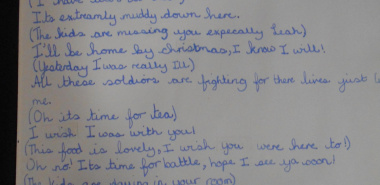 Its extreamly muddy down here.
(The kids are missing you expecally Leah)
I'll be home by christmas, I know I will!
(Yesterday I was really Ill)
All these soldiors are fighting for there lives just
me.
(Oh its time for tea)
I wish I was with you!
(This food is lovely, I wish you were here to!)
Oh no! Its time for battle, hope I see ya soon!
(The kids are in your room)